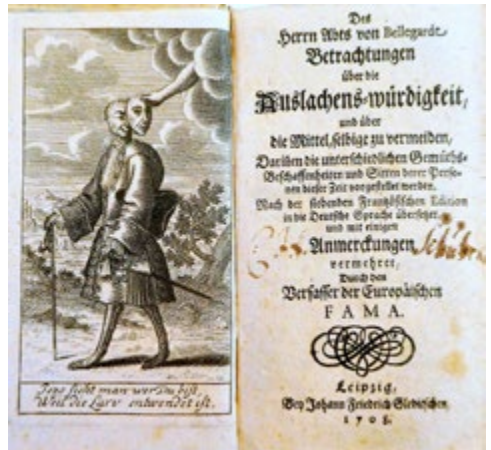 Jezo sieht man wer Du bist,
Weil die Larv entwendet ist.
Des
Herrn Abts von Bellegarde
Betrachtungen
über die
Auslachens-würdigkeit,
und über
die Mittel, selbige zu vermeiden,
Darinnen die unterschiedlichen Gemüths-
Beschaffenheiten und Sitten derer Perso-
nen dieser Zeit vorgestellet werden.
Nach der siebenden Frantzösischen Edition
in die Deutsche Sprache übersetzet
und mit einigen
Anmerckungen
vermehret,
Durch den
Verfasser der Europäischen
FAMA.
Leipzig,
Bey Johann Friedrich Gleditschen,